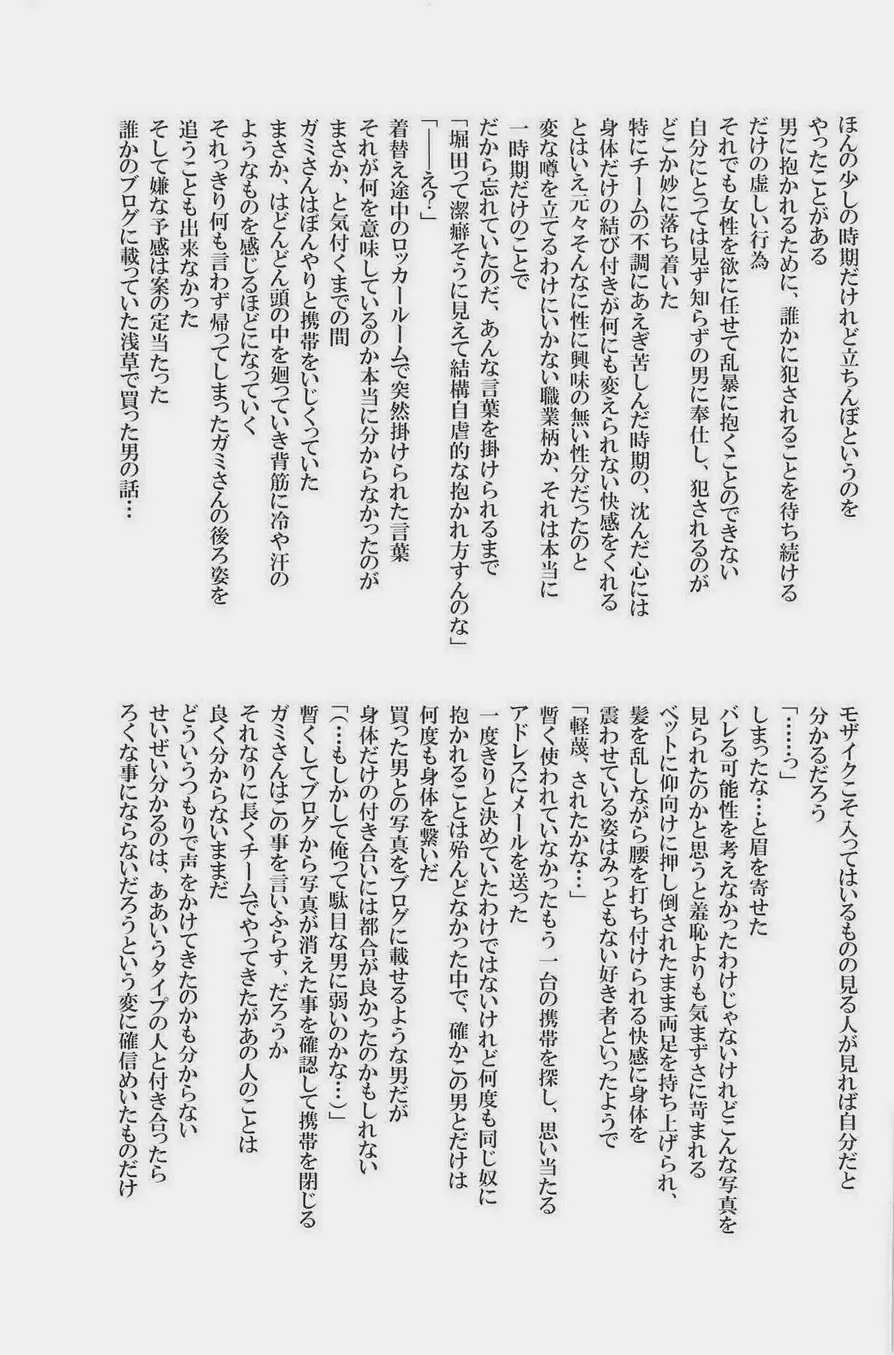 ほんの少しの時期だけれど立ちんぼというのを
やったことがある
男に抱かれるために、誰かに犯されることを待ち続ける
だけの虚しい行為
それでも女性を欲に任せて乱暴に抱くことのできない
自分にとっては見ず知らずの男に奉仕し、犯されるのが
どこか妙に落ち着いた
特にチームの不調にあえぎ苦しんだ時期の、沈んだ心には
身体だけの結び付きが何にも変えられない快感をくれる
とはいえ元々そんなに性に興味の無い性分だったのと
変な噂を立てるわけにいかない職業柄か、それは本当に
一時期だけのことで
だから忘れていたのだ、あんな言葉を掛けられるまで
「堀田って潔癖そうに見えて結構自虐的な抱かれ方すんのな」
「――え？」
着替え途中のロッカールームで突然掛けられた言葉
それが何を意味しているのか本当に分からなかったのが
まさか、と気付くまでの間
ガミさんはぼんやりと携帯をいじくっていた
まさか、はどんどん頭の中を廻っていき背筋に冷や汗の
ようなものを感じるほどになっていく
それっきり何も言わず帰ってしまったガミさんの後ろ姿を
追うことも出来なかった
そして嫌な予感は案の定当たった
誰かのブログに載っていた浅草で買った男の話…
モザイクこそ入ってはいるものの見る人が見れば自分だと
分かるだろう
「……っ」
しまったな…と眉を寄せた
バレる可能性を考えなかったわけじゃないけれどこんな写真を
見られたのかと思うと羞恥よりも気まずさに苛まれる
ベットに仰向けに押し倒されたまま両足を持ち上げられ、
髪を乱しながら腰を打ち付けられる快感に身体を
震わせている姿はみっともない好き者といったようで
「軽蔑、されたかな…」
暫く使われていなかったもう一台の携帯を探し、思い当たる
アドレスにメールを送った
一度きりと決めていたわけではないけれど何度も同じ奴に
抱かれることは殆んどなかった中で、確かこの男とだけは
何度も身体を繋いだ
買った男との写真をブログに載せるような男だが
身体だけの付き合いには都合が良かったのかもしれない
「（…もしかして俺って駄目な男に弱いのかな…）」
暫くしてブログから写真が消えた事を確認して携帯を閉じる
ガミさんはこの事を言いふらす、だろうか
それなりに長くチームでやってきたがあの人のことは
良く分からないままだ
どういうつもりで声をかけてきたのかも分からない
せいぜい分かるのは、ああいうタイプの人と付き合ったら
ろくな事にならないだろうという変に確信めいたものだけ